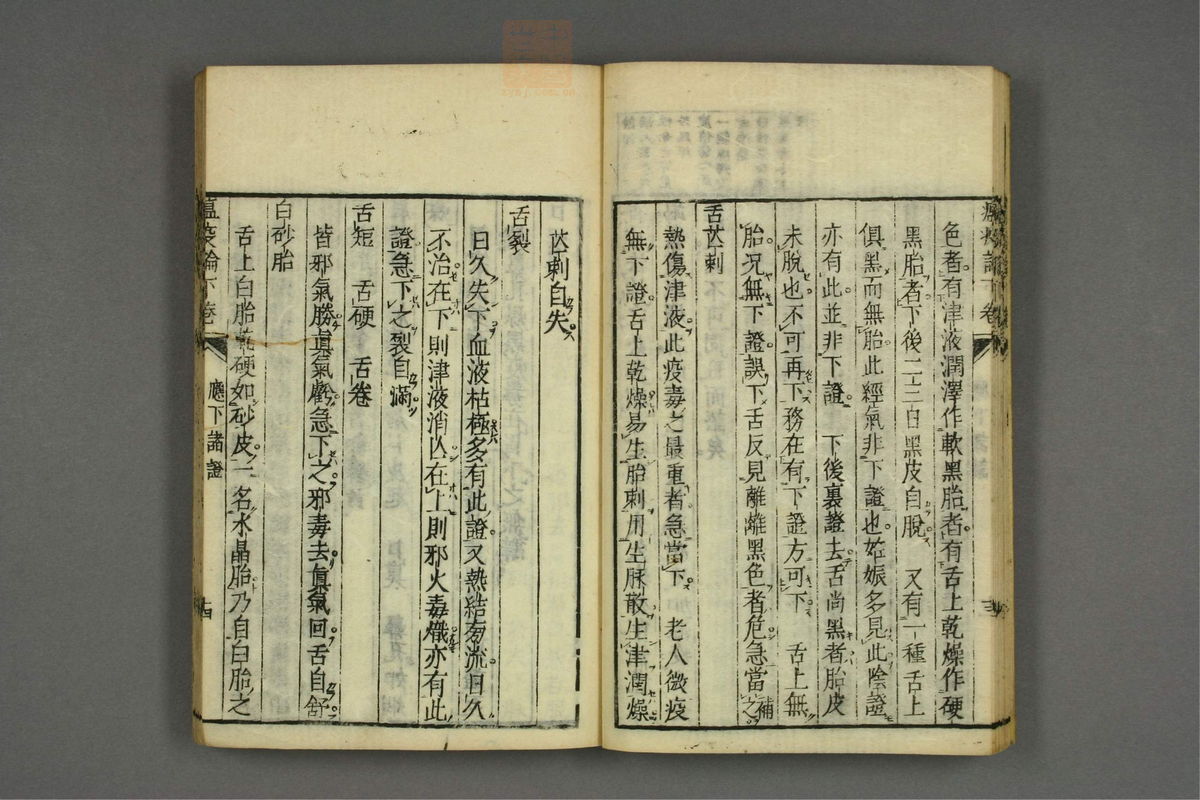 色者有津液潤澤作軟黑胎者有舌上乾燥作硬
黑胎者下後二三日黑皮自脫 又有一種舌上
俱黑而無胎此經氣非下證也姙娠多見此陰證
亦有此並非下證 下後裏證去舌尚黑者胎皮
未脫也不可再下務在有下證方可下 舌上無
胎况無下證誤下舌反見離離黑色者危急當補之
舌芒刺
熱傷津液此疫毒之最重者急當下 老人微疫
無下證舌上乾燥易生胎刺用生脉散生津潤燥
芒刺自失
舌裂
日久失下血液枯極多有此證又熱結旁流日久
不治在下則津液消亾在上則邪火毒熾亦有此
證急下之裂自滿
舌短 舌硬 舌卷
皆邪氣勝眞氣虧急下之邪毒去眞氣回舌自舒
白砂胎
舌上白胎乾硬如砂皮一名水晶胎乃自白胎之
瘟疫論下卷 應下諸證 十四